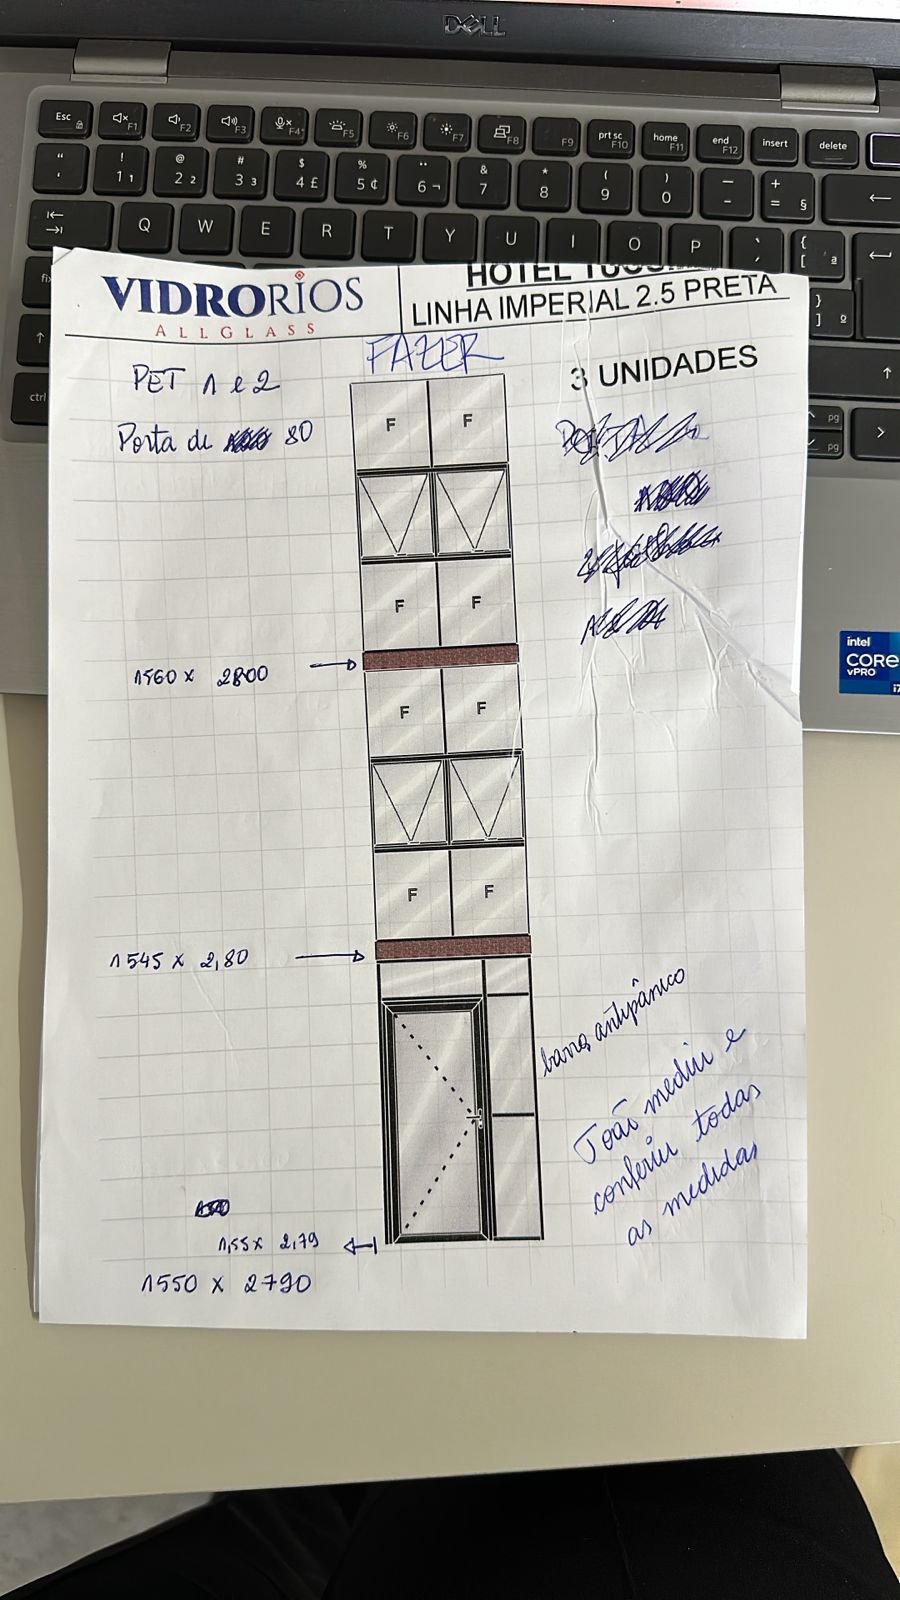 DELL
Esc F1 F2 F3 F4 F5 F6 F7 F8 F9 prt sc F10 home F11 end F12 insert delete
! 1 1 @ 2 2 # 3 3 $ 4 £ % 5 ¢ 6 ¬ & 7 * 8 ( 9 ) 0 — - + = §
Q W E R T Y U I O P { [ ª
} ] º
ctrl
pg
pg
intel
CORE
vPRO
i7
VIDRORIOS
ALLGLASS
HOTEL
LINHA IMPERIAL 2.5 PRETA
FAZER
3 UNIDADES
PET 1 e 2
Porta de 80
F F
F F
1560 x 2800
F F
F F
1545 x 2,80
barra antipânico
João mediu e
conferiu todas
as medidas
1,55 x 2,79
1550 x 2790